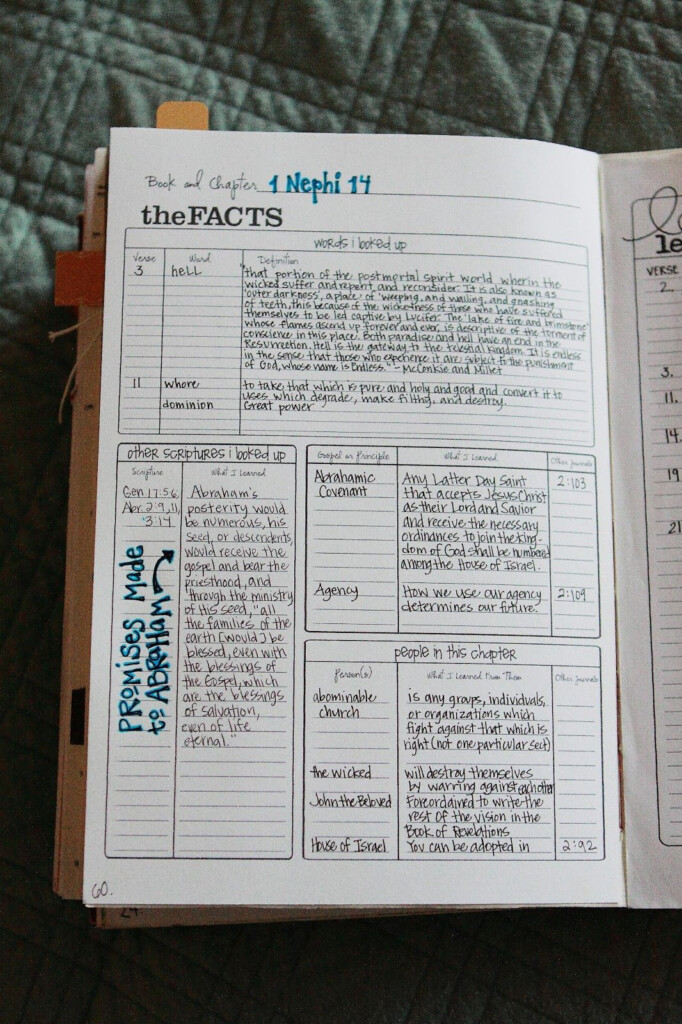 Book and Chapter 1 Nephi 14
the FACTS
words i looked up
Verse Word Definition
3 hell "that portion of the postmortal spirit world wherin the
wicked suffer and repent, and reconsider. It is also known as
'outer darkness', a place of 'weeping, and wailing, and gnashing
of teeth, this because of the wickedness of those who have suffered
themselves to be led captive by Lucifer. The 'lake of fire and brimstone'
whose flames ascend up forever and ever, is descriptive of the torment of
conscience in this place. Both paradise and hell have an end in the
Resurrection. Hell is the gateway to the telestial kingdom. It is endless
in the sense that those who experience it are subject to the punishment
of God, whose name is Endless." - McConkie and Millet
11 whore to take that which is pure and holy and good and convert it to
uses which degrade, make filthy, and destroy.
dominion Great power
other scriptures i looked up
Scripture What I Learned
Gen 17:5,6, Abraham's
Abr. 2:9,11, posterity would
3:14 be numerous, his
seed, or descendents,
would receive the
gospel and bear the
priesthood, and
"through the ministry
of His seed, "all
the families of the
earth [would] be
blessed, even with
the blessings of
the Gospel, which
are the blessings
of salvation,
even of life
eternal."
PROMISES Made
to ABRAHAM
Gospel or Principle What I Learned Other Journals
Abrahamic Any Latter Day Saint 2:103
Covenant that accepts Jesus Christ
as their Lord and Savior
and receive the necessary
ordinances to join the king-
dom of God shall be numbered
among the House of Israel.
Agency How we use our agency 2:109
determines our future.
people in this chapter
Person(s) What I Learned From Them Other Journals
abominable is any groups, individuals,
church or organizations which
fight against that which is
right (not one particular sect)
the wicked will destroy themselves
by warring against each other
John the Beloved Foreordained to write the
rest of the vision in the
Book of Revelations
House of Israel You can be adopted in 2:92
60.
24.
le
VERSE
2
3.
11.
14.
19
21